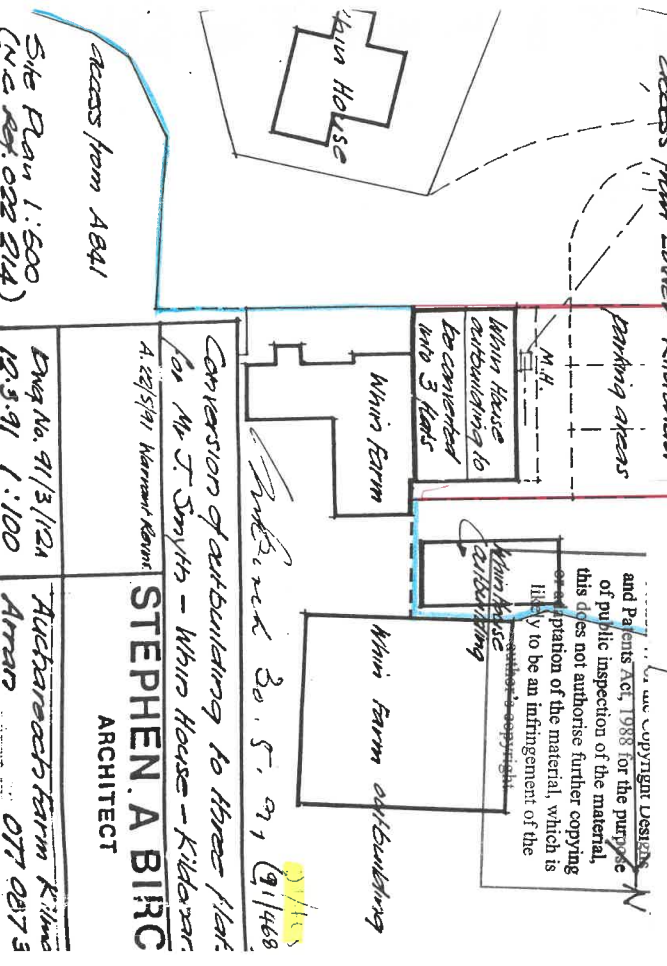 Whin House
access from A841
Site Plan 1:500
parking areas
M.H.
Whin House
outbuilding to
be converted
into 3 flats
Whin Farm
Whin House
outbuilding
Whin Farm outbuilding
Copyright Designs
and Patents Act, 1988 for the purpose
of public inspection of the material,
this does not authorise further copying
or adaptation of the material, which is
likely to be an infringement of the
author's copyright
N
30.5.91 (91/468
Conversion of outbuilding to three flats
for Mr J. Smyth - Whin House - Kildonan
A. 22/5/91 Warrant
STEPHEN. A BIRC
ARCHITECT
Dwg No. 91/3/12A
12.3.91 1:100
Auchareoch Farm Kilmo
Arran 077 087 3